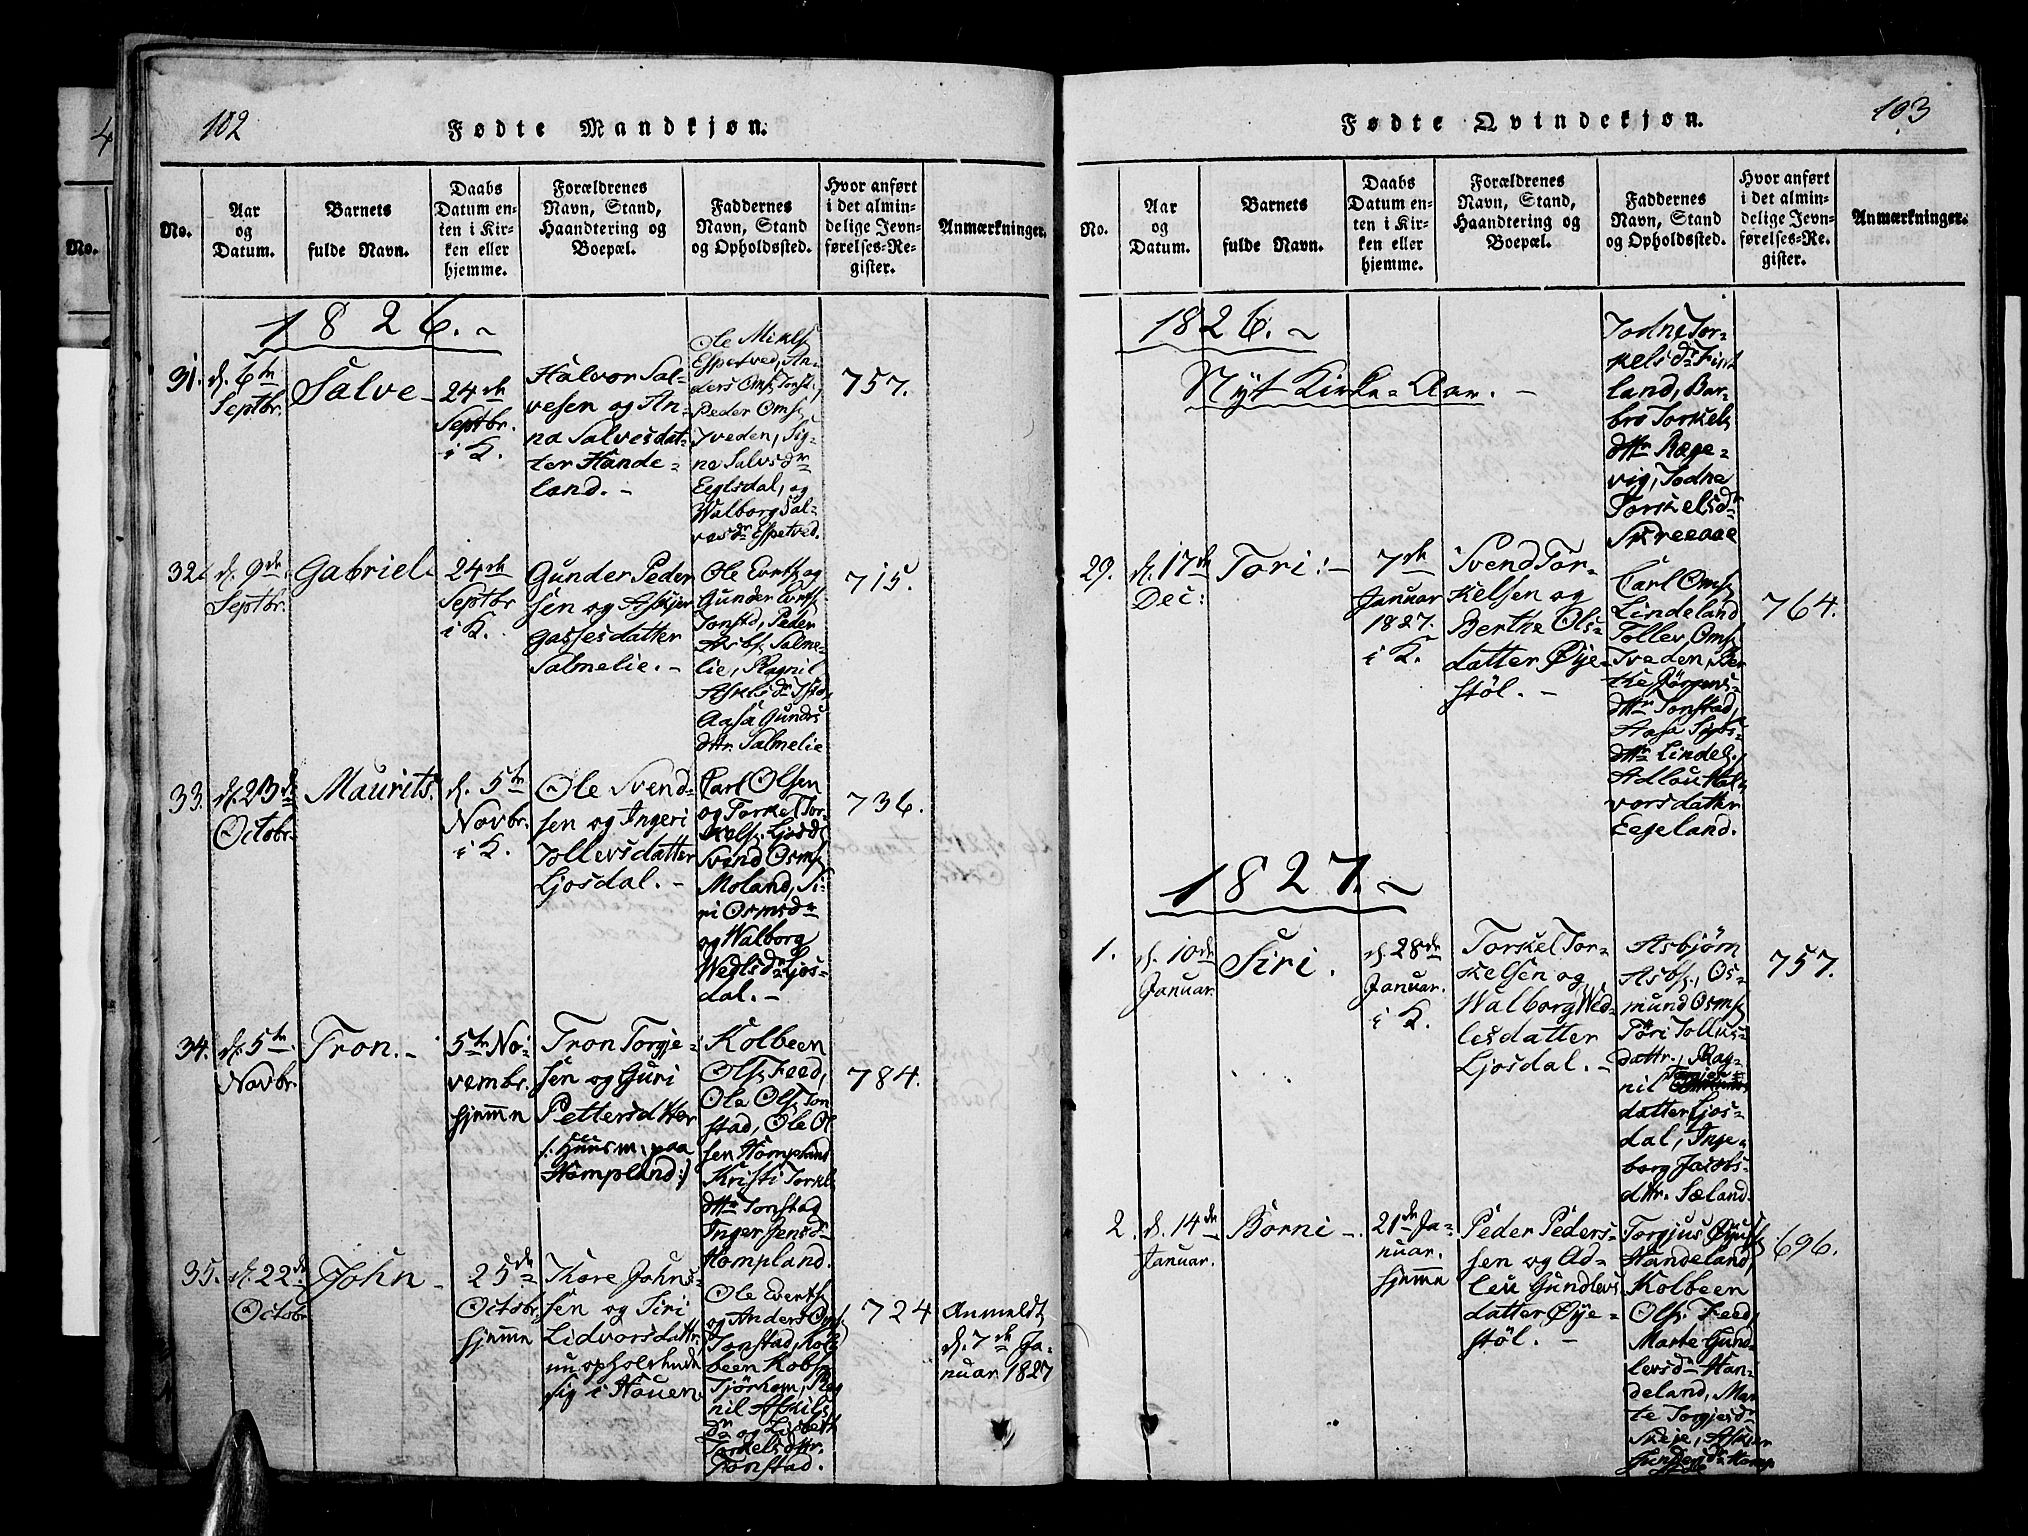 102
Fødte Mandkjøn.
No.
Aar
og
Datum.
Barnets
fulde Navn.
Daabs
Datum en-
ten i Kir-
ken eller
hjemme.
Forældrenes
Navn, Stand,
Haandtering og
Boepæl.
Faddernes
Navn, Stand
og Opholdssted.
Hvor anført
i det almin-
delige Jevn-
førelses-Re-
gister.
Anmærkninger.
1826. ~
31.
d. 6te
Septbr.
Salve -
24de
Septbr.
i K.
Halvor Sal-
vesen og An-
na Salvesdat-
ter Hande-
land. -
Ole
Espetved, An-
ders Oms. Tonst.,
Peder Oms.
Tveden, Sig-
ne Salvsdr
Eeglsdal, og
Walborg Sal-
vesdr Espetved.
757.
32.
d. 9de
Septbr.
Gabriel.
24de
Septbr
i K.
Gunder Peder
sen og
Gassesdatter
Salmelie. -
Ole Evrts. og
Gunder Evrts.
Tonstd, Peder
Asbs. Salme-
lie, Ragnil
Aasa Gunds
dttr. Salmelie
715.
33.
d. 23de
Octobr.
Maurits.
d. 5te
Novbr.
i K.
Ole Svend-
sen og Ingeri
Tollevsdatter
Ljosdal. -
Carl Olsen
og Torkel Tor-
kels. Ljosd,
Svend Osms.
Moland, Si-
ri Osmsdr
og Walborg
Wedlsdr Ljos-
dal. -
736.
34.
d. 5te
Novbr.
Tron. -
5te No-
vembr.
hjemme
Tron Torgje-
sen og Guri
Pettersdtter
/: Huusm. paa
Hompland:/
Kolbeen
Ols. Feed,
Ole Ols. Ton
stad, Ole Ol
sen Hompland
Kristi Torkls
dttr Tonstad
Inger Jensd
Hompland.
784.
35.
d. 22de
Octobr
John -
25de
Octobr.
hjemme
Tore Johns-
sen og Siri
Lidvorsdattr.
nu opholdende
sig i Houen.
Ole Everts.
og Anders Oms.
Tonstad, Kol-
been Kobs.
Tjörhom, Rag
nil
dr og Lisbeth
Torkelsdttr.
Tonstad.
724
Anmeldt
d. 7de Ja-
nuar 1827
103
Fødte Qvindekjøn.
No.
Aar
og
Datum.
Barnets
fulde Navn.
Daabs
Datum en-
ten i Kir-
ken eller
hjemme.
Forældrenes
Navn, Stand,
Haandtering og
Boepæl.
Faddernes
Navn, Stand
og Opholdssted.
Hvor anført
i det almin-
delige Jevn-
førelses-Re-
gister.
Anmærkninger.
1826. ~
Nyt Kirke-Aar. -
Jodne Tor-
kelsdr Fint
land, Bar-
bro Torkels
dttr Ræge-
vig, Jodne
Torkelsdr
Skreeaae
29.
d. 17de
Dec:
Tori: -
7de
Januar
1827.
i K.
Svend Tor-
kelsen og
Berthe Ols-
datter Øye-
stöl. -
Carl Oms.
Lindeland
Tollev Oms.
Tveden, Ber
the Jörgens-
dttr Tonstad,
Aasa Sigbs-
dttr Lindel.,
Adlou Hal-
vorsdatter
Eegeland.
764.
1827. ~
1.
d. 10de
Januar.
Siri.
d. 28de
Januar.
i K.
Torkel Tor-
kelsen og
Walborg Wed-
lesdatter
Ljosdal. -
Asbjørn
Asbs., Os-
mund Osms.
Tori Tollus-
dattr., Rag-
nil Torgjes
datter Ljos-
dal, Inge-
borg Jacobs-
dttr. Sæland.
757.
2.
d. 14de
Januar.
Börni -
21de Ja-
nuar.
hjemme
Peder Peders-
sen og Ad-
leu Gundlevs
datter Øye-
stöl. -
Torgjus
Handeland,
Kolbeen
Ols. Feed,
Marte Gund-
levsdr Han-
deland, Mar-
te Torgjesdr
Skeie,
696.